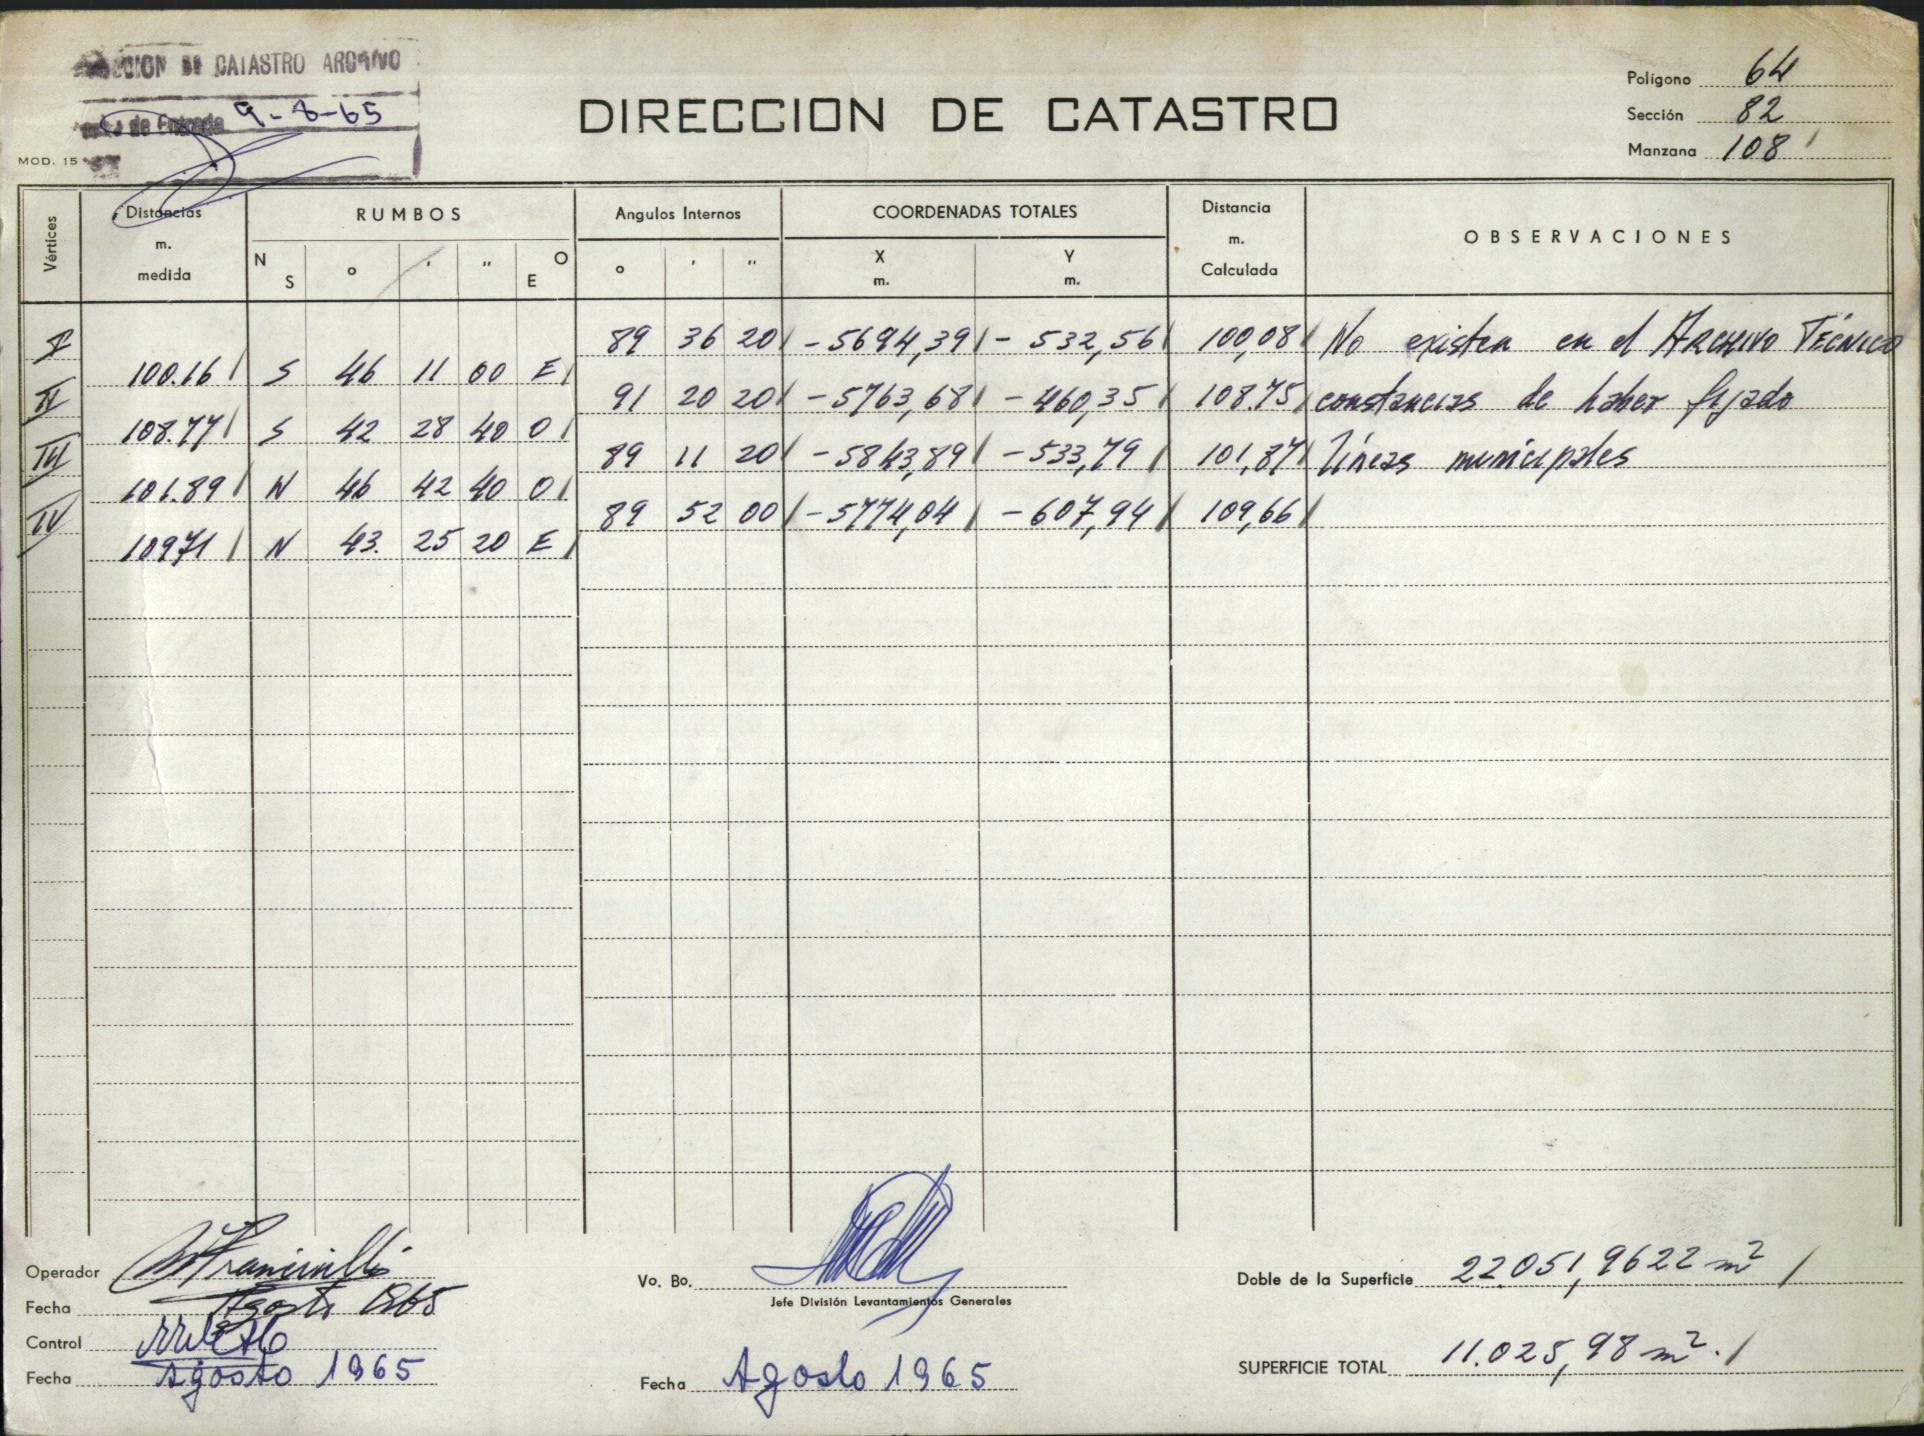 CION DE CATASTRO ARCHIVO
de Entrada 9-8-65
MOD. 15
DIRECCION DE CATASTRO
Polígono 64
Sección 82
Manzana 108
Vértices
Distancias m. medida
RUMBOS
N S ° ' " O E
Angulos Internos
° ' "
COORDENADAS TOTALES
X m. Y m.
Distancia m. Calculada
OBSERVACIONES
I 89 36 20 -5694,39 - 532,56 100,08 No existen en el ARCHIVO TÉCNICO
100.16 S 46 11 00 E
II 91 20 20 -5763,68 -460,35 108.75 constancias de haber fijado
108.77 S 42 28 40 O
III 89 11 20 -5843,89 -533,79 101,87 líneas municipales
101.89 N 46 42 40 O
IV 89 52 00 -5774,04 -607,94 109,66
10971 N 43. 25 20 E
Operador
Fecha Agosto 1965
Control
Fecha Agosto 1965
Vo. Bo.
Jefe División Levantamientos Generales
Fecha Agosto 1965
Doble de la Superficie 22.051,9622 m²
SUPERFICIE TOTAL 11.025,98 m².